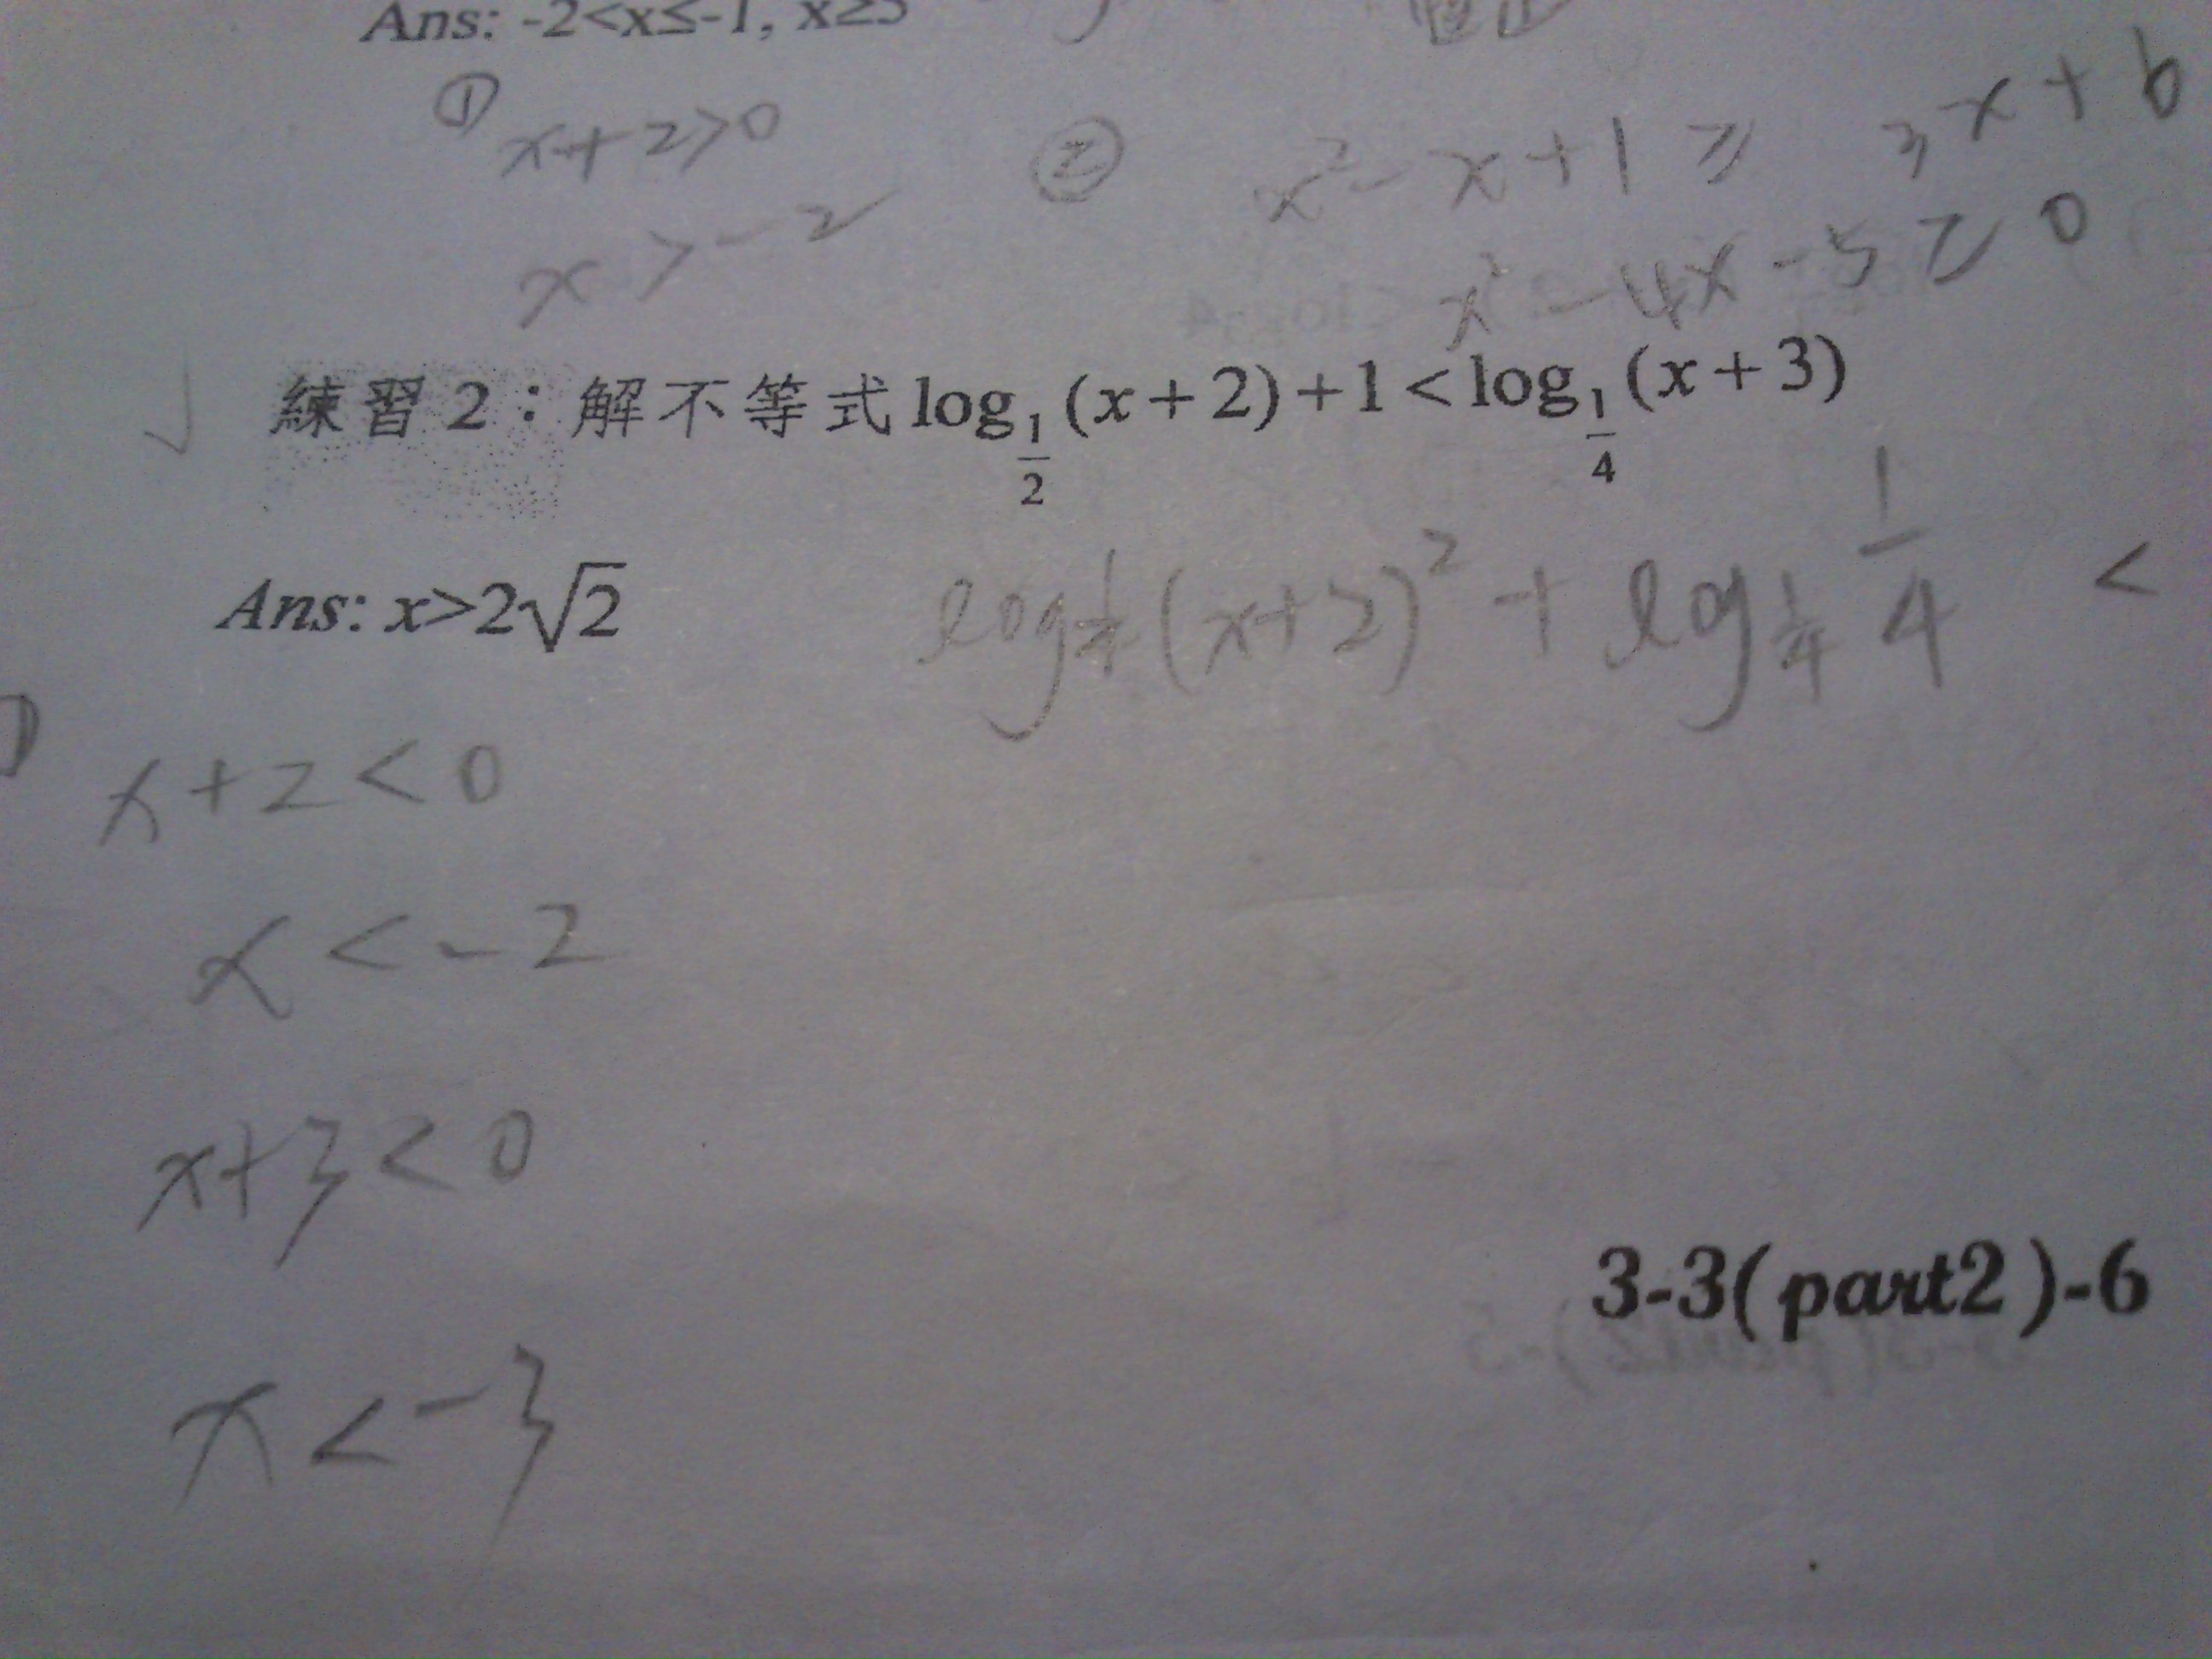 Ans: -2<x≤-1, x≥5
① x+2>0
x>-2
② x²-x+1≥3x+6
x²-4x-5≥0
練習2：解不等式 log_{1/2}(x+2)+1<log_{1/4}(x+3)
Ans: x>2√2
log_{1/4}(x+2)²+log_{1/4} 1/4 <
x+2<0
x<-2
x+3<0
x<-3
3-3(part2)-6